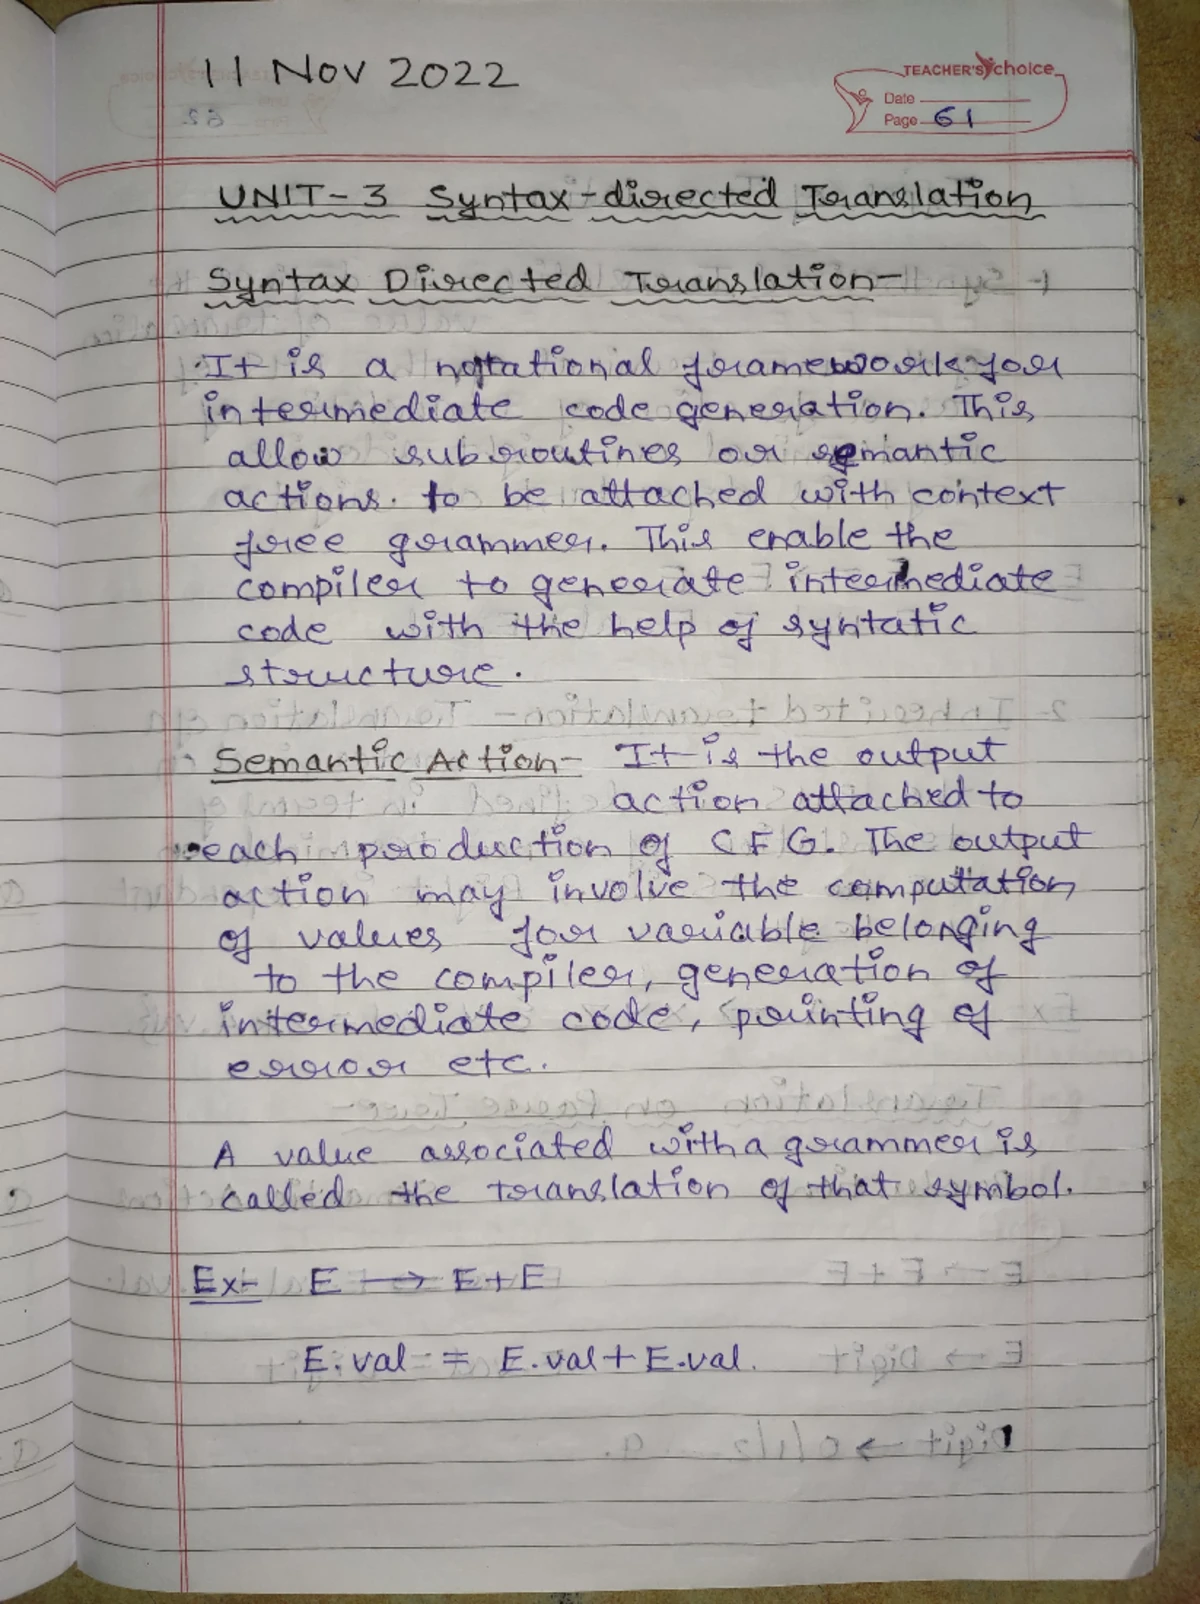 11 Nov 2022
TEACHER'S choice
Date
Page 61
UNIT-3 Syntax-directed Translation
Syntax Directed Translation-
It is a notational framework for
intermediate code generation. This
allow subroutines or semantic
actions. to be attached with context
free grammer. This enable the
compiler to generate intermediate
code with the help of syntatic
structure.
Semantic Action- It is the output
action attached to
each production of CFG. The output
action may involve the computation
of values for variable belonging
to the compiler, generation of
intermediate code, printing of
error etc.
A value associated with a grammer is
called the translation of that symbol.
Ex- E → E+E
E.val = E.val + E.val.